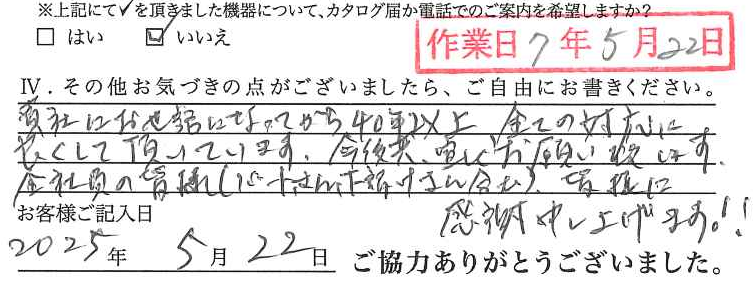 ※上記にて✓を頂きました機器について、カタログ届か電話でのご案内を希望しますか?
□ はい ☑ いいえ
作業日 7年5月22日
Ⅳ．その他お気づきの点がございましたら、ご自由にお書きください。
貴社にお世話になってから40年以上 全ての対応に
良くして頂いています。今後共、宜しくお願い致します。
全社員の皆様(パートさん下請けさん含む)、皆様に
感謝申し上げます!!
お客様ご記入日
2025年 5月 22日
ご協力ありがとうございました。